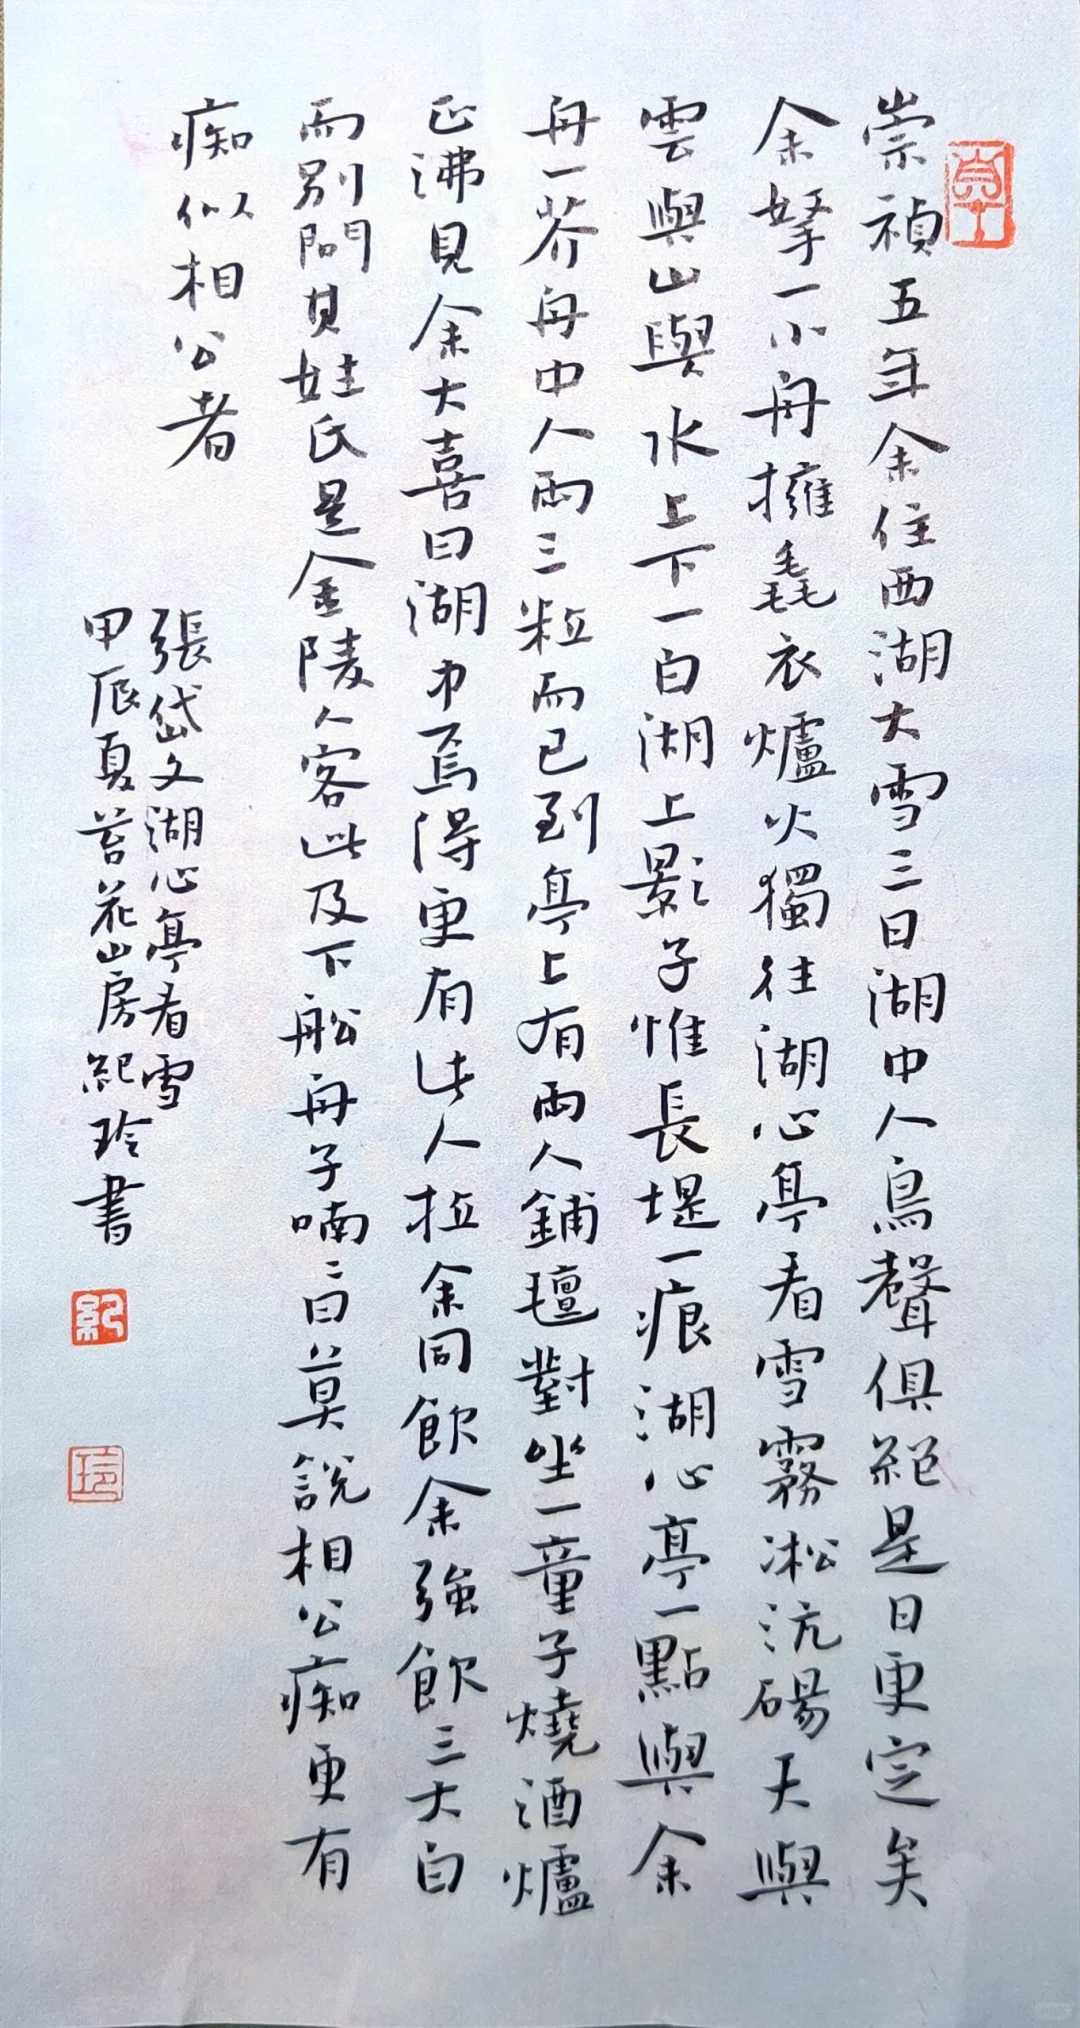 崇禎五年余住西湖大雪三日湖中人鳥聲俱絕是日更定矣
余拏一小舟擁毳衣爐火獨往湖心亭看雪霧凇沆碭天與
雲與山與水上下一白湖上影子惟長堤一痕湖心亭一點與余
舟一芥舟中人兩三粒而已到亭上有兩人鋪氊對坐一童子燒酒爐
正沸見余大喜曰湖中焉得更有此人拉余同飲余強飲三大白
而別問其姓氏是金陵人客此及下船舟子喃〻曰莫說相公痴更有
痴似相公者
張岱文湖心亭看雪
甲辰夏苔花山房紀玲書
紀
玲